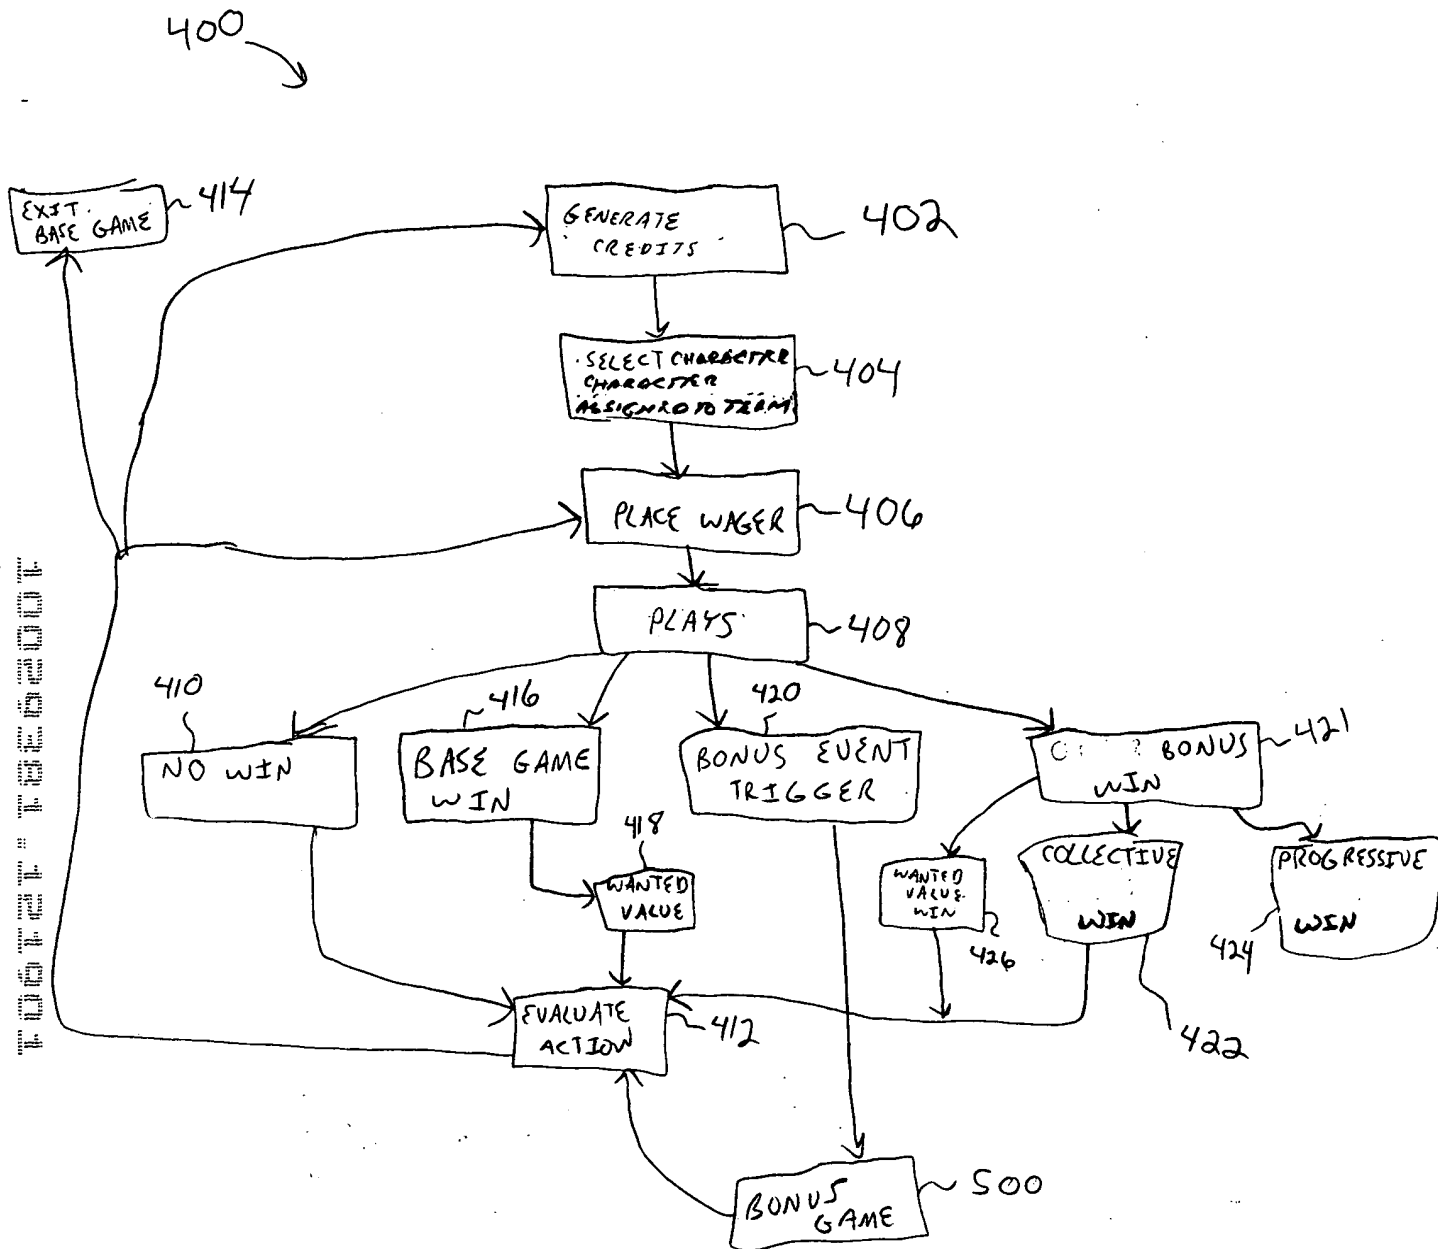 400
EXIT
BASE GAME
414
GENERATE
CREDITS
402
SELECT CHARACTER
CHARACTER
ASSIGNED TO TEAM
404
PLACE WAGER
406
PLAYS
408
410
NO WIN
416
BASE GAME
WIN
420
BONUS EVENT
TRIGGER
BONUS
WIN
421
418
WANTED
VALUE
WANTED
VALUE
WIN
426
COLLECTIVE
WIN
422
PROGRESSIVE
WIN
424
EVALUATE
ACTION
412
BONUS
GAME
500
10029381 . 121901